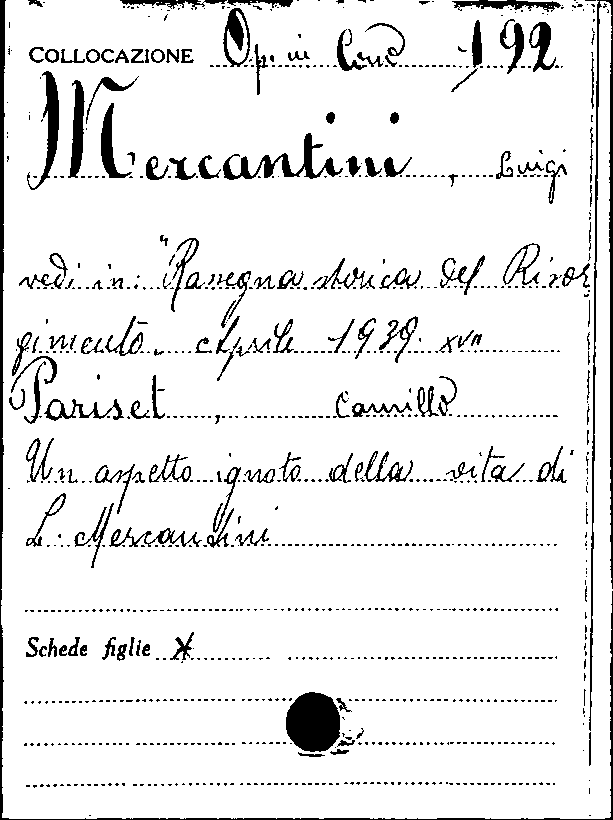 COLLOCAZIONE Op. in Cons 192
Mercantini, Luigi
vedi in: "Rassegna storica del Risor
gimento. Aprile 1939. XVII
Pariset, Camillo
Un aspetto ignoto della vita di
L. Mercantini
Schede figlie *